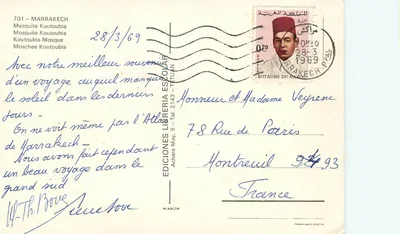 701 - MARRAKECH
Mezquita Koutoubia
Mosquée Koutoubia
Koutoubia Mosque
Moschee Koutoubia
28/3/69
Avec notre meilleur souvenir
d'un voyage auquel manque
le soleil dans les derniers
jours -
On ne voit même pas l'Atlas
de Marrakech -
Nous avons fait cependant
un beau voyage dans le
grand sud
M. Th. Bove
EDICIONES LIBRERIA ESCOLAR
TETUAN
المملكة المغربية
0,20
ROYAUME DU MAROC
مراكش
28-3
1969
MARRAKECH PPAL
Monsieur et Madame Veyrene
78 Rue de Paris
Montreuil 93
France